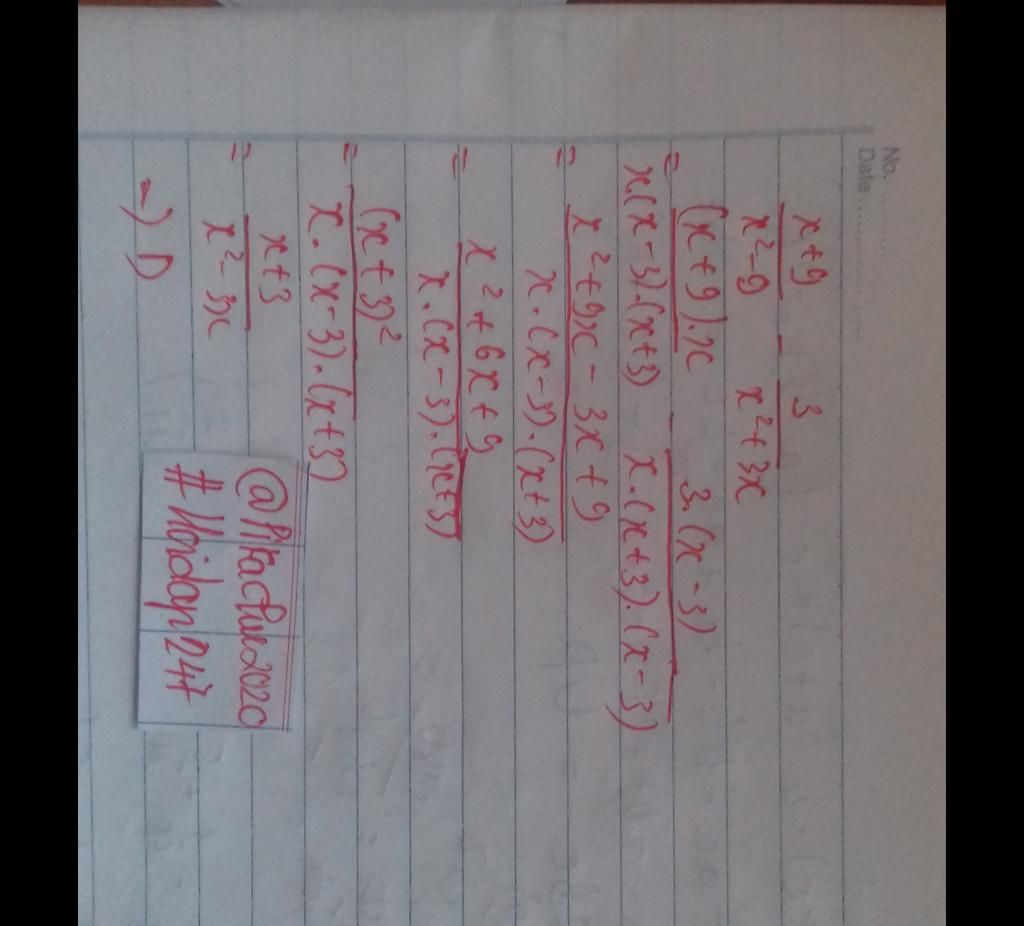 No.
Date
x+9/x²-9 - 3/x²+3x
= (x+9).x/x.(x-3).(x+3) - 3.(x-3)/x.(x+3).(x-3)
= x²+9x-3x+9/x.(x-3).(x+3)
= x²+6x+9/x.(x-3).(x+3)
= (x+3)²/x.(x-3).(x+3)
= x+3/x²-3x
→ D
@Pikachue2020
#Hoidap247